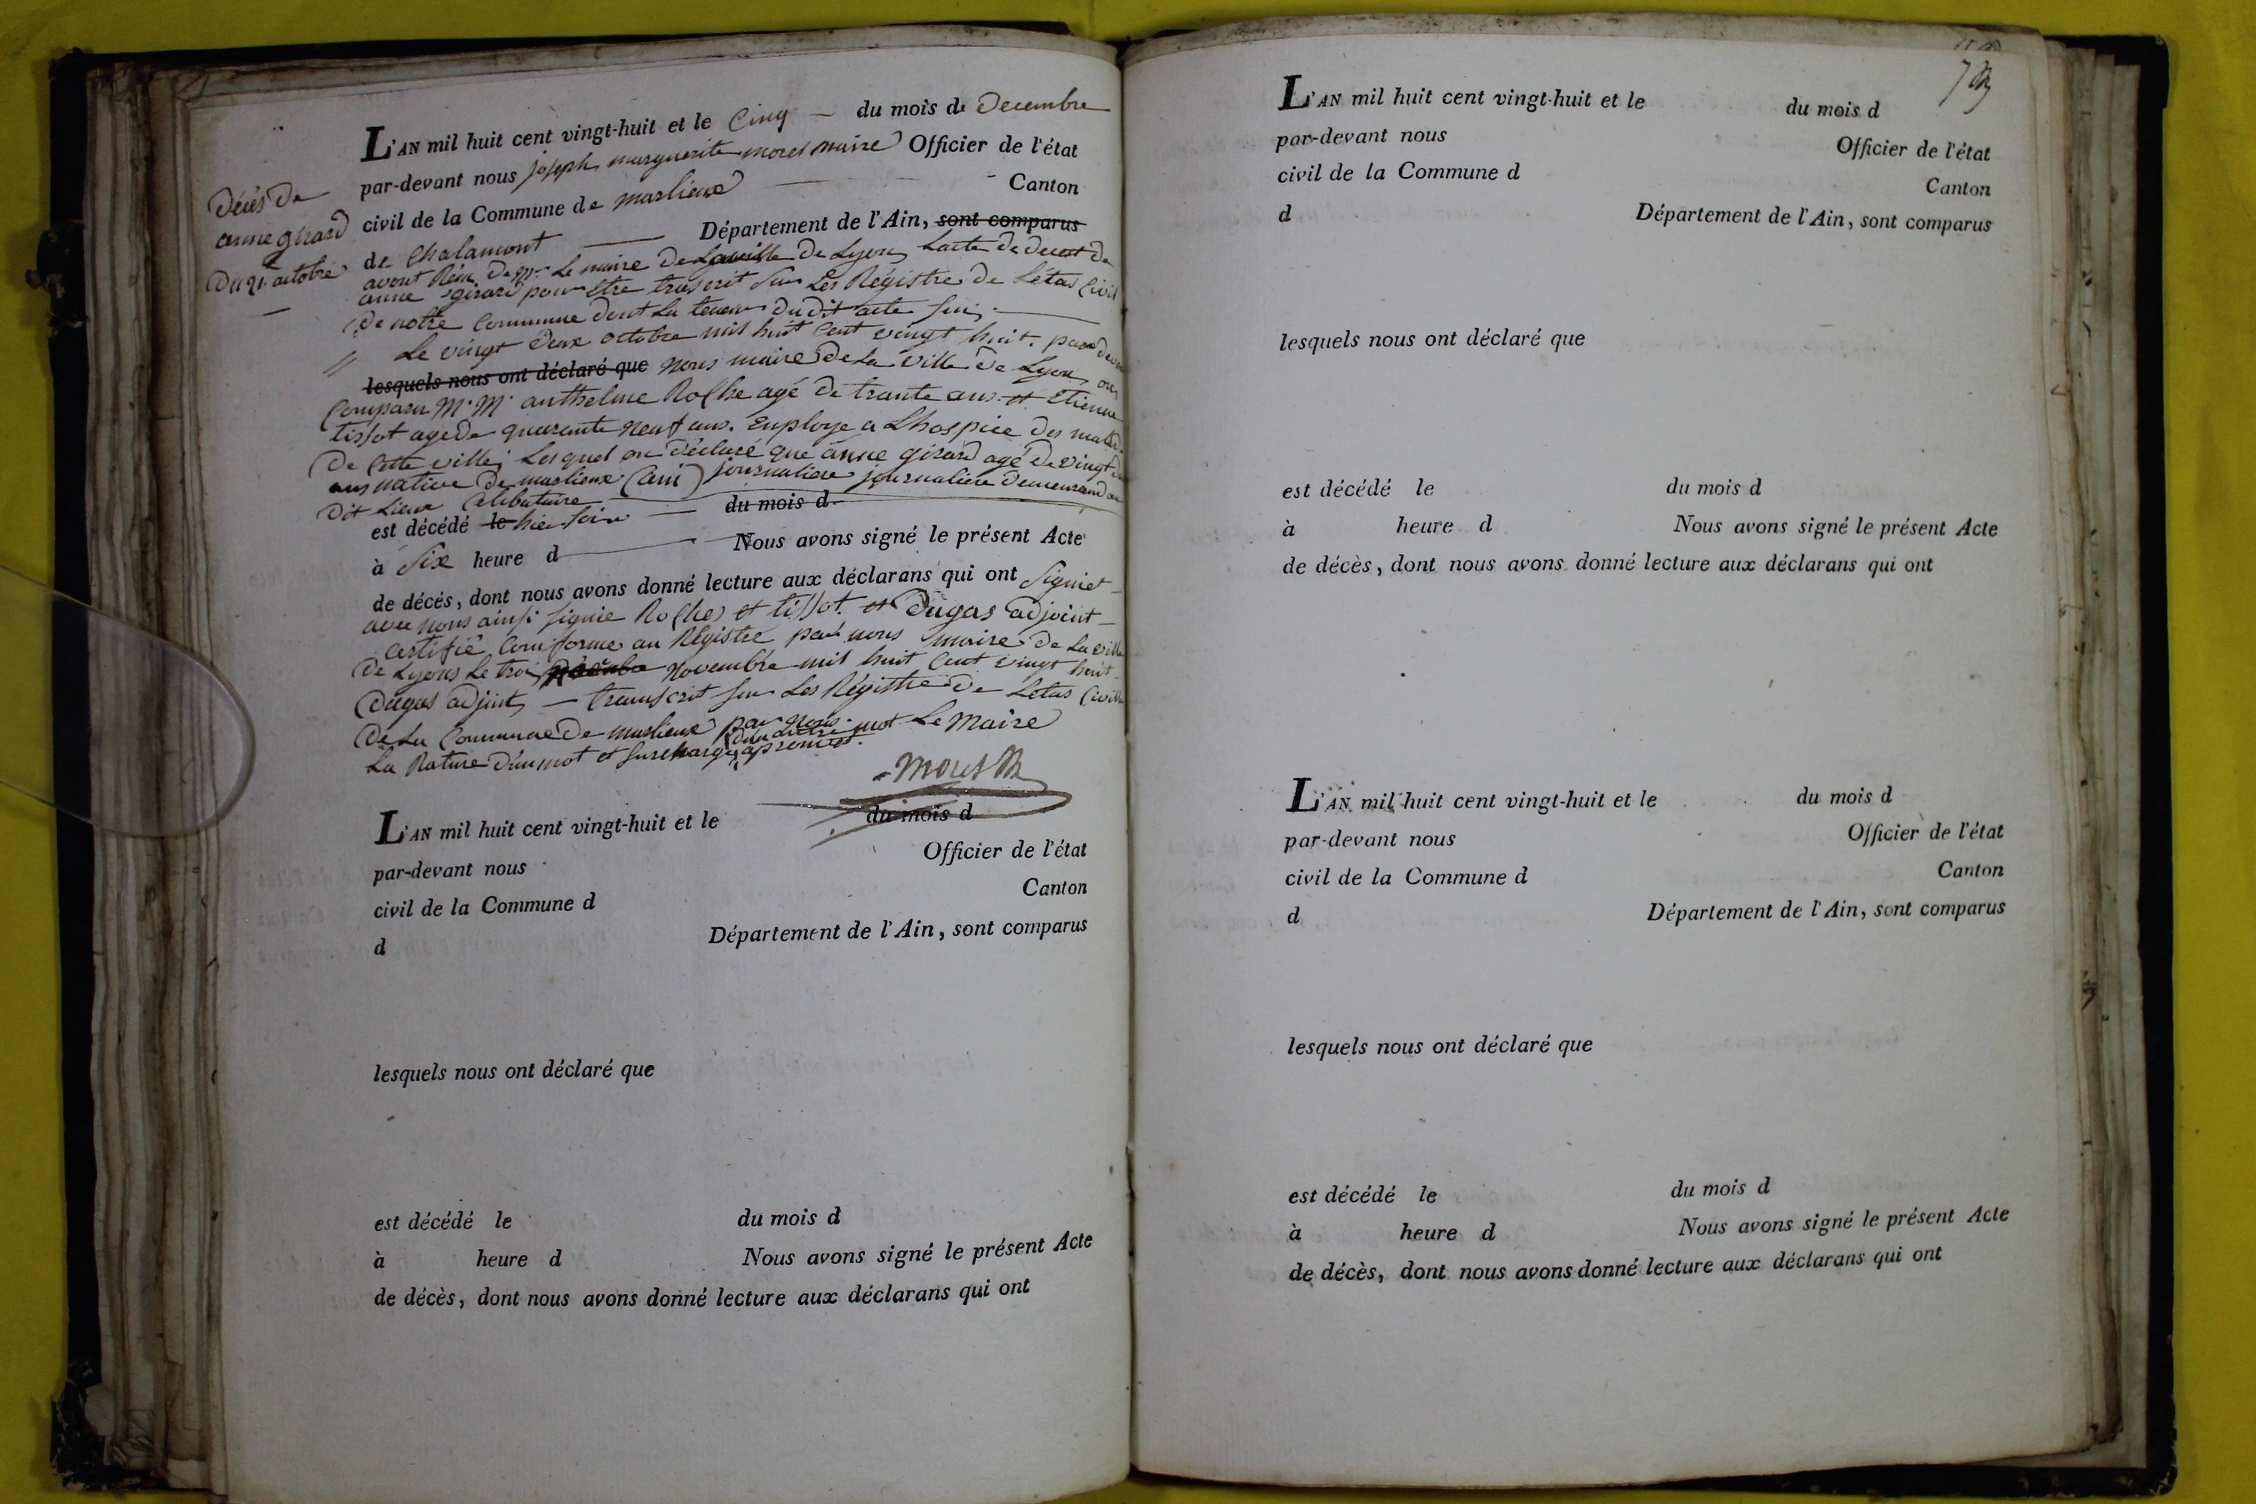 Décès de
anne girard
Du 21 octobre
L'AN mil huit cent vingt-huit et le Cinq du mois de Decembre
par-devant nous joseph marguerite morel maire Officier de l'état
civil de la Commune de marlieux Canton
de Chalamont Département de l'Ain, sont comparus
avont Réçu de Mr Le maire de La ville De Lyon, Lacte de de
anne girard pour Etre trascrit Sur Les Régistre de Létas Civil
De notre Commune dont La teneur Du dit acte Suis
Le vingt deux octobre mil huit Cent vingt huit. par de
lesquels nous ont déclaré que nous maire De La ville De Lyon, on
Comparu M. M. anthelme Roche agé De trante ans. et Etienne
tissot agé de quarante neuf ans. Employe a Lhospice des
De Cette ville; Lesquel on Déclaré que anne girard agé De vingt
ans native De marlieux (ain) journaliere journaliere Demeurand au
Dit Lieux Célibataire
est décédé le hier Soir du mois d
à Six heure d Nous avons signé le présent Acte
de décès, dont nous avons donné lecture aux déclarans qui ont Signiet
avec nous ainsi Signie Roche et tissot. et Dugas adjoint
Certifié Comforme au Régistre par nous maire De La ville
De Lyons Le trois Novembre mil huit Cent vingt huit
Dugas adjoint, transcrit Sur Les Régistre De Létas Civille
De La Commune De marlieux par nous Le Maire
La Rature D'un mot et Surcharge D'un autre mot aprouvés.
Morel
L'AN mil huit cent vingt-huit et le du mois d
par-devant nous Officier de l'état
civil de la Commune d Canton
d Département de l'Ain, sont comparus
lesquels nous ont déclaré que
est décédé le du mois d
à heure d Nous avons signé le présent Acte
de décès, dont nous avons donné lecture aux déclarans qui ont
L'AN mil huit cent vingt-huit et le du mois d
par-devant nous Officier de l'état
civil de la Commune d Canton
d Département de l'Ain, sont comparus
lesquels nous ont déclaré que
est décédé le du mois d
à heure d Nous avons signé le présent Acte
de décès, dont nous avons donné lecture aux déclarans qui ont
L'AN mil huit cent vingt-huit et le du mois d
par-devant nous Officier de l'état
civil de la Commune d Canton
d Département de l'Ain, sont comparus
lesquels nous ont déclaré que
est décédé le du mois d
à heure d Nous avons signé le présent Acte
de décès, dont nous avons donné lecture aux déclarans qui ont